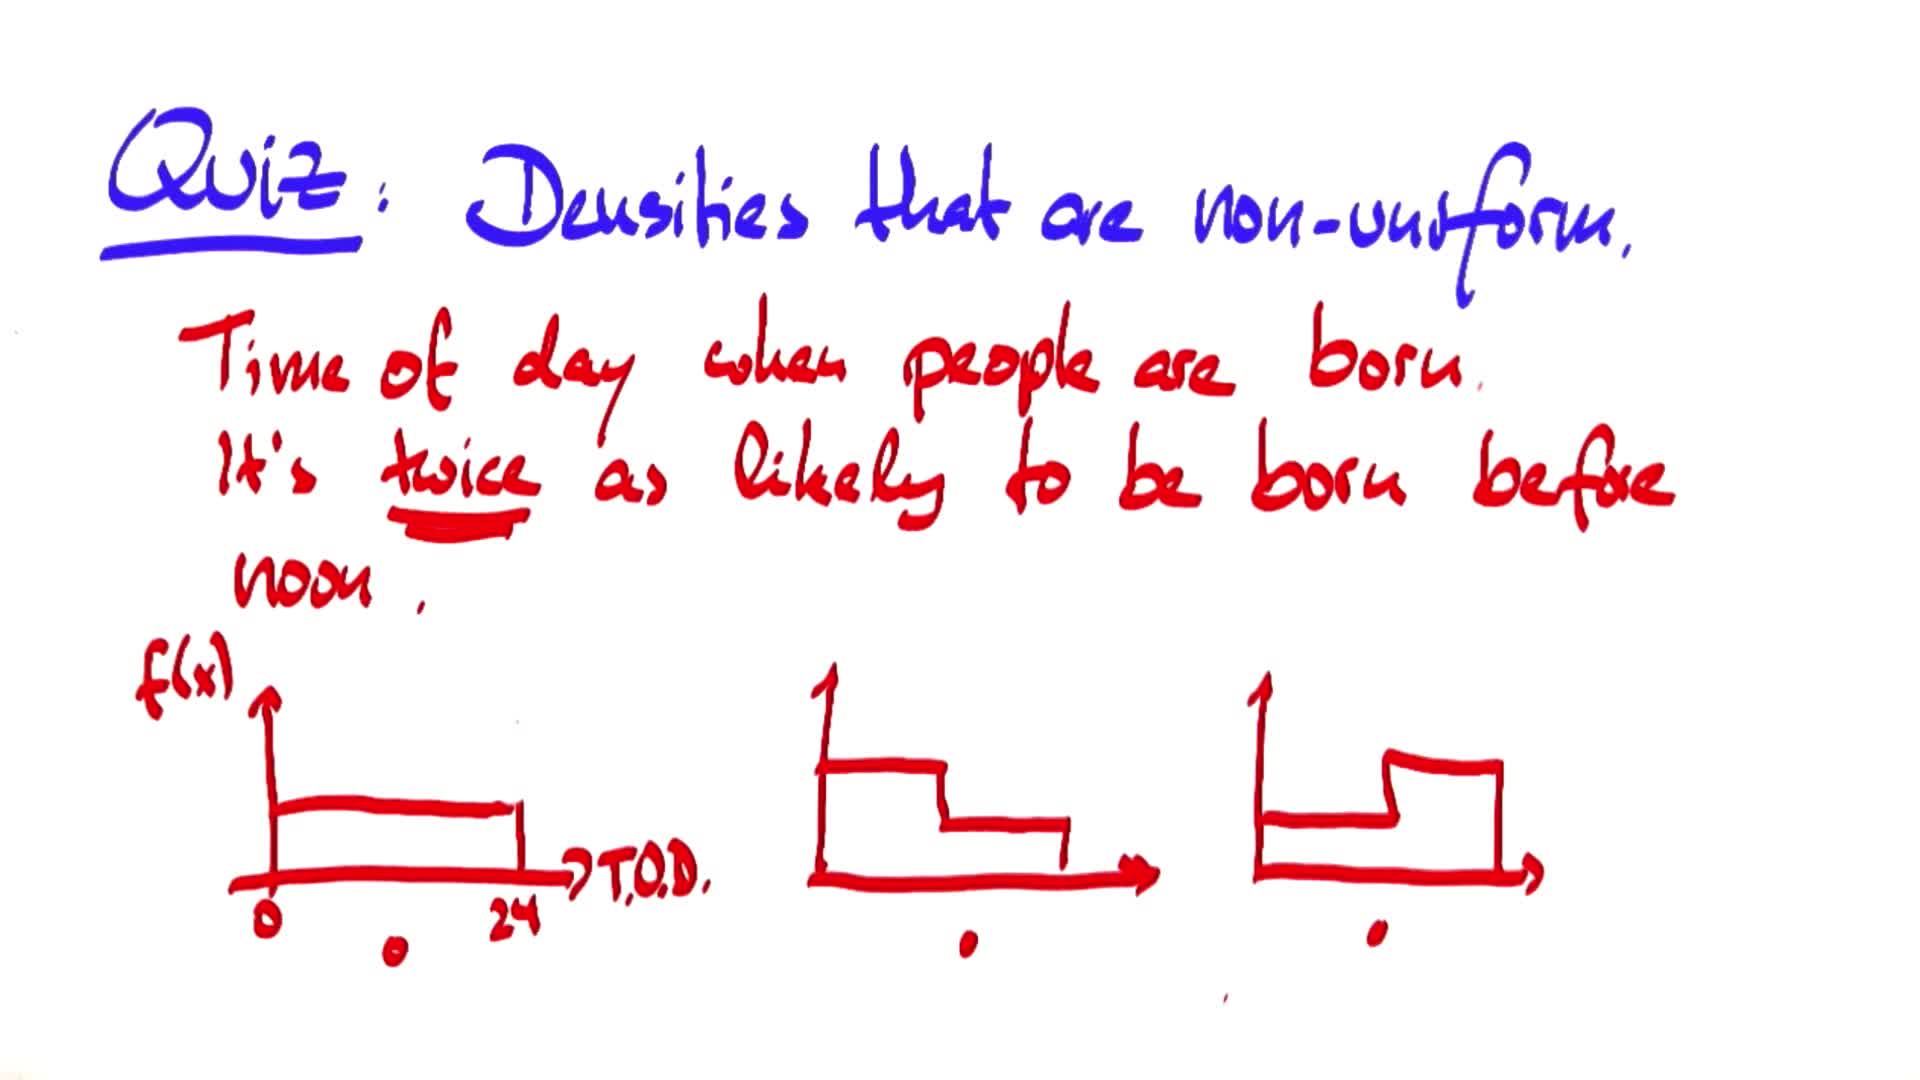 Quiz: Densities that are non-uniform.
Time of day when people are born.
It's twice as likely to be born before
noon.
f(x)
T.O.D.
0
24